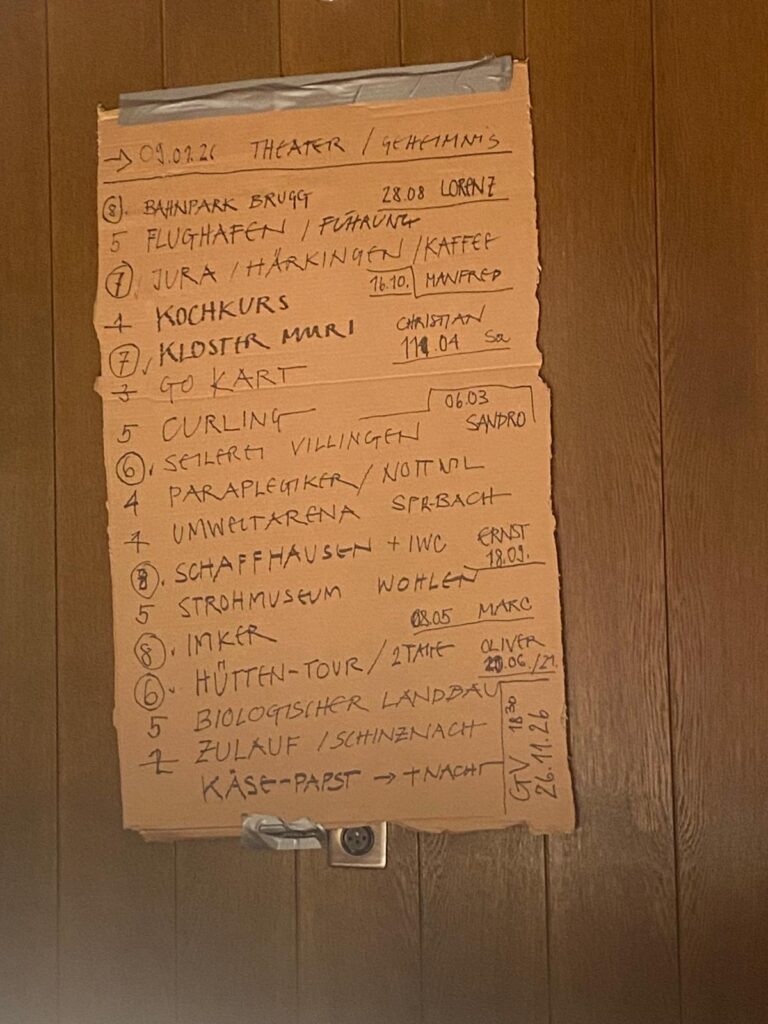 → 09.01.26 THEATER / GEHEIMNIS
8. BAHNPARK BRUGG 28.08 LORENZ
5 FLUGHAFEN / FÜHRUNG
7. JURA / HÄRKINGEN / KAFFEE
16.10. MANFRED
KOCHKURS
7. KLOSTER MURI CHRISTIAN
11.04 Sa
3 GO KART
5 CURLING 06.03
6. SEILEREI VILLINGEN SANDRO
4 PARAPLEGIKER / NOTTWIL
UMWELTARENA SPR-BACH
8. SCHAFFHAUSEN + IWC ERNST
18.09.
5 STROHMUSEUM WOHLEN
8. IMKER 08.05 MARC
6. HÜTTEN-TOUR / 2TAGE OLIVER
20.06./21.
5 BIOLOGISCHER LANDBAU
2 ZULAUF / SCHINZNACH
KÄSE-PAPST → + NACHT
GV 18.30
26.11.26